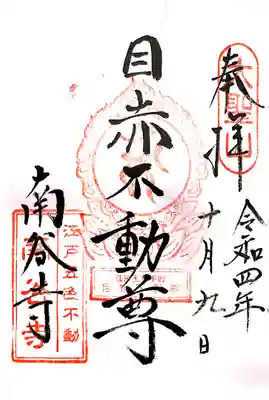 奉拝
令和四年
十月九日
目赤不動尊
南谷寺
江戸五色不動